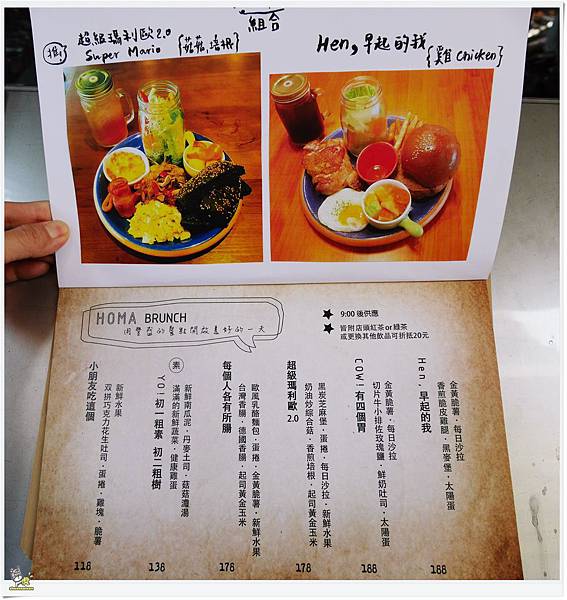 組合
推!
超級瑪利歐2.0
Super Mario
{菇菇,培根}
Hen,早起的我
{雞 Chicken}
HOMA BRUNCH
用豐富的餐點開啟美好的一天
★ 9:00 後供應
★ 皆附店頭紅茶or綠茶
或更換其他飲品可折抵20元
Hen,早起的我
金黃脆薯・每日沙拉
香煎脆皮雞腿・黑麥堡・太陽蛋
188
COW!有四個胃
金黃脆薯・每日沙拉
切片牛小排佐玫瑰鹽・鮮奶吐司・太陽蛋
188
超級瑪利歐2.0
黑炭芝麻堡・蛋捲・每日沙拉・新鮮水果
奶油炒綜合菇・香煎培根・起司黃金玉米
178
每個人各有所腸
歐風乳酪麵包・蛋捲・金黃脆薯・新鮮水果
台灣香腸・德國香腸・起司黃金玉米
178
素
YO!初一粗素 初二粗樹
新鮮南瓜泥・丹麥土司・菇菇濃湯
滿滿的新鮮蔬菜・健康雞蛋
138
小朋友吃這個
新鮮水果
双拼巧克力花生吐司・蛋捲・雞塊・脆薯
118